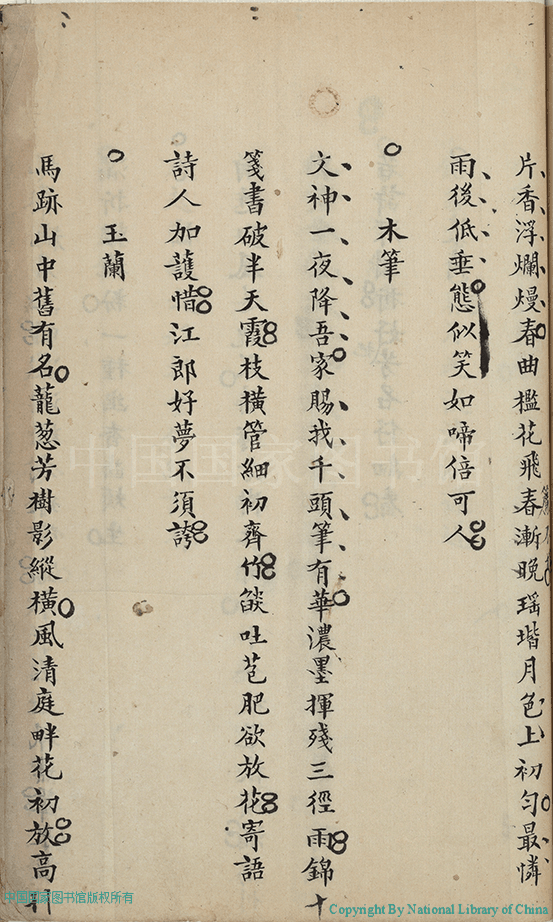 片香浮爛熳春曲檻花飛春漸晚瑶堦月色上初勻最憐
雨後低垂態似笑如啼倍可人
木筆
文神一夜降吾家賜我千頭筆有華濃墨揮殘三徑雨錦
箋書破半天霞枝橫管細初齊竹燄吐苞肥欲放花寄語
詩人加護惜江郎好夢不須誇
玉蘭
馬跡山中舊有名蘢葱芳樹影縱橫風清庭畔花初放高
中国国家图书馆
中国国家图书馆版权所有
Copyright By National Library of China